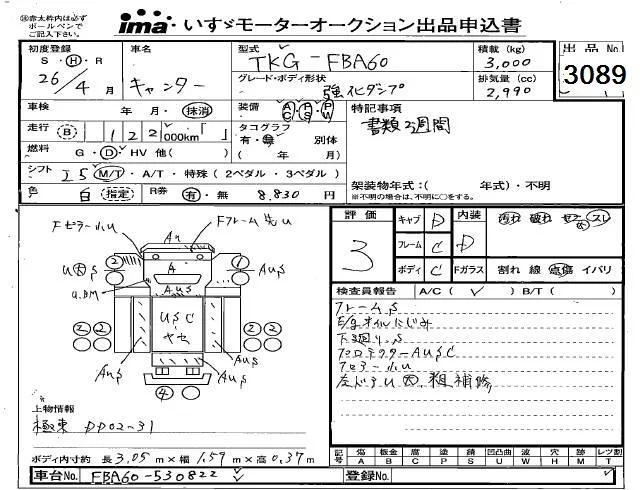 ※赤太枠内は必ず
ボールペンで
ご記入下さい。
ima いすゞモーターオークション出品申込書
初度登録 車名 型式 積載 (kg) 出品No
S・H・R 26年 4月 キャンター TKG-FBA60 3,000 3089
グレード・ボディ形状 排気量 (cc)
強化ダンプ 2,990
車検 年 月・抹消 装備 A/C P/S P/W 特記事項
走行 B 122,000km「 」 タコグラフ 書類2週間
有・無 別体
燃料 G・D・HV 他( ) ( 年 月)
シフト I5 M/T・A/T・特殊(2ペダル・3ペダル) 架装物年式:( 年式)・不明
※不明の場合は、不明に○をする。
色 白 (指定) R券 有・無 8,830円
評価 3 キャブ D 内装 D 汚れ 破れ スレ
フレーム C
ボディ C Fガラス 割れ 線 点傷 イバリ
検査員報告 A/C( ✓ ) B/T( )
Fピラー小U Fフレーム先U
A
AUS
U.BM
AUS
USC
ヤセ
② ②
② ②
AUS AUS
④
フレームS
E/gオイルにじみ
下廻りS
プロテクターAUSC
フロアー小U
左ドアU大、粗補修
上物情報
極東 DD02-31
ボディ内寸約 長3.05m×幅1.59m×高0.37m
記号 傷 板金 腐 塗 錆 凹凸曲 波 穴 欠 レツ割
A B C P S U W H M T
車台No. FBA60-530822 登録No.